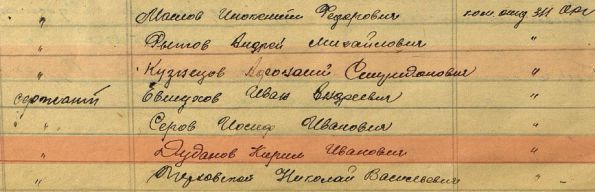 " Маслов Инокентий Федорович ком. отд. 311 Арс
" Рытов Андрей Михайлович "
" Кузнецов Афонасий Спиридонович "
сержант Евтюхов Иван Андреевич "
" Серов Иосиф Иванович "
" Дуданов Кирил Иванович "
" Терховской Николай Васильевич "